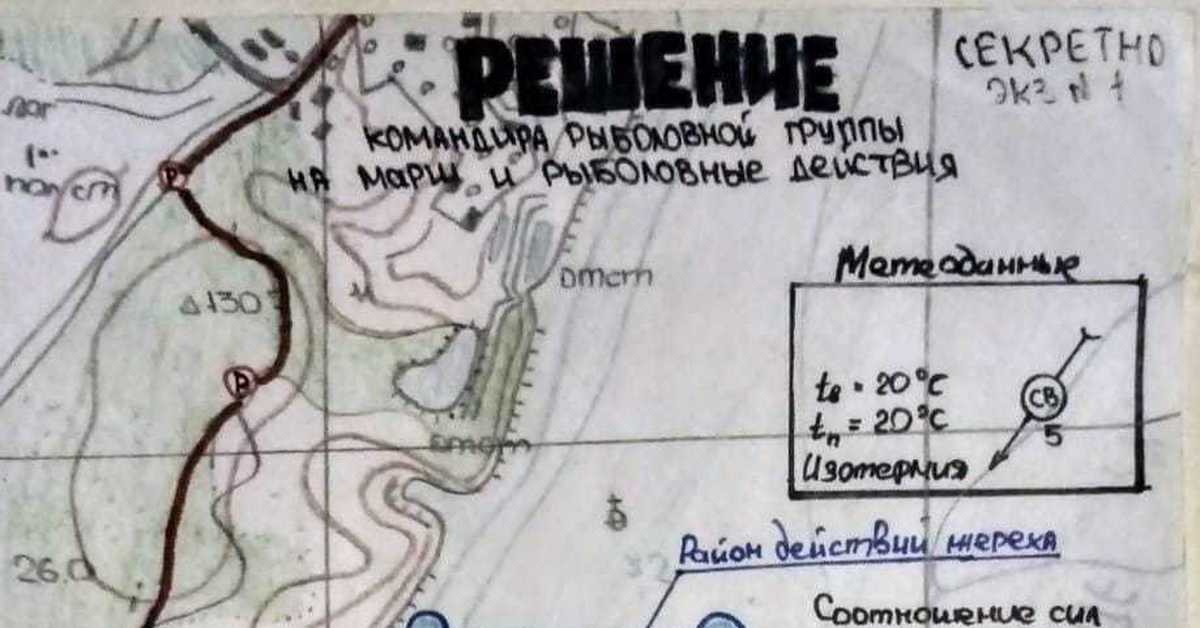 РЕШЕНИЕ
КОМАНДИРА РЫБОЛОВНОЙ ГРУППЫ
НА МАРШ И РЫБОЛОВНЫЕ ДЕЙСТВИЯ
СЕКРЕТНО
ЭКЗ N 1
лог
пол ст
Р
отст
130
Метеоданные
tв = 20°C
tп = 20°C
Изотермия
СВ
5
Р
отст
Район действий жереха
26.0
32
Соотношение сил